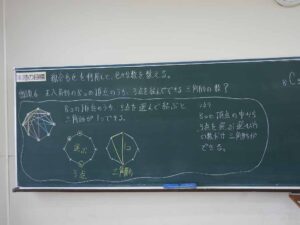 組合せを利用して、色々な数を数える。
正八角形の8つの頂点のうち、3点を結んでできる三角形の数?
8つの頂点のうち、3点を選んで結ぶと
三角形が1つできる。
選ぶ
3点
三角形
つまり
8つの頂点の中から
3点を選ぶ選び方
の数だけ三角形が
できる。
8C